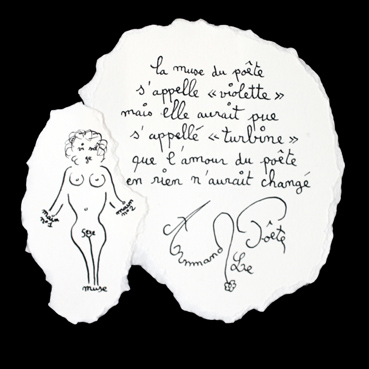 la muse du poête
s'appelle « violette »
mais elle aurait pue
s'appellé « turbine »
que l'amour du poête
en rien n'aurait changé
Armand Le Poête
vi sa
ge
main
n°1
main
n°2
sexe
muse